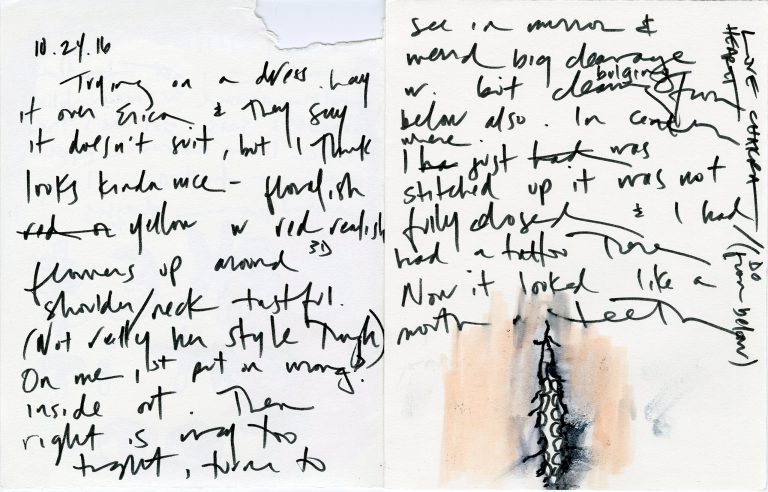 10.24.16
Trying on a dress. Lay
it over Erica & they say
it doesn't suit, but I think
looks kinda nice - floralish
red or yellow w red realish
3D
flowers up around
shoulder/neck tastful.
(Not really her style though)
On me, 1st put on wrong?
inside out. Then
right is way too
tight, turn to
see in mirror &
weird big cleavage
w. but clean bulging
below also. In center
where
I ha just had was
stitched up it was not
fully closed & I had
had a tattoo there
Now it looked like a
mouth w teeth
LOVE CHAKRA // DO
HEART
(from below)